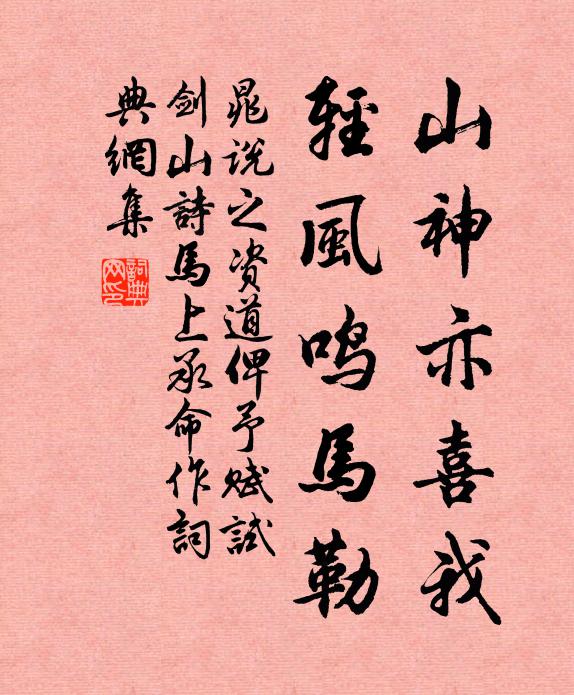 山神亦喜我
輕風鳴馬勒
晁说之资道俾予赋試
剑山詩馬上承命作詞
典網集
詞典
网印